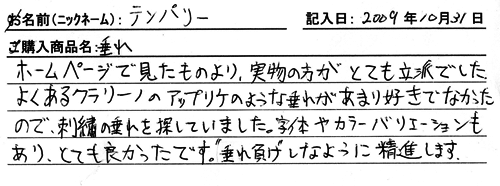 お名前(ニックネーム): テンパリー 記入日: 2009年10月31日
ご購入商品名:垂れ
ホームページで見たものより、実物の方がとても立派でした
よくあるクラリーノのアップリケのような垂れがあまり好きでなかった
ので、刺繍の垂れを探していました。字体やカラーバリエーションも
あり、とても良かったです。"垂れ負け"しなように精進します。